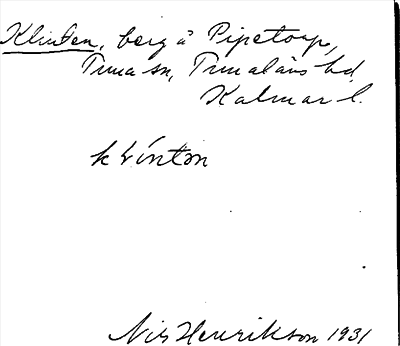 Klinten, berg å Pipetorp,
Tuna sn, Tunaläns hd,
Kalmar l.
Nils Henrikson 1931